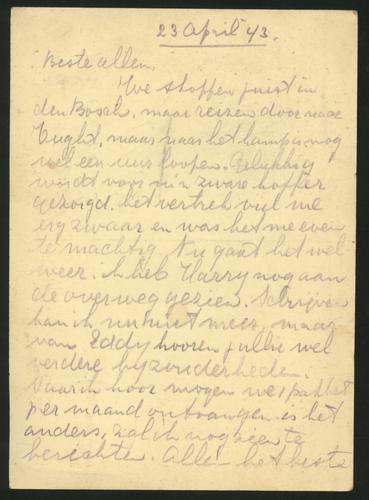 23 April '43.
Beste allen.
We stoppen juist in
den Bosch, maar reizen door naar
Vught, maar naar het kamp is nog
wel een uur loopen. Gelukkig
wordt voor mijn zware koffer
gezorgd. het vertrek viel me
erg zwaar en was het me even
te machtig. Nu gaat het wel
weer. ik heb Harry nog aan
de overweg gezien. Schrijven
kan ik nu niet meer, maar
van Eddy hooren jullie wel
verdere bijzonderheden.
Naar ik hoor mogen we 1 pakket
per maand ontvangen. is het
anders, zal ik nog zien te
berichten. Allen het beste